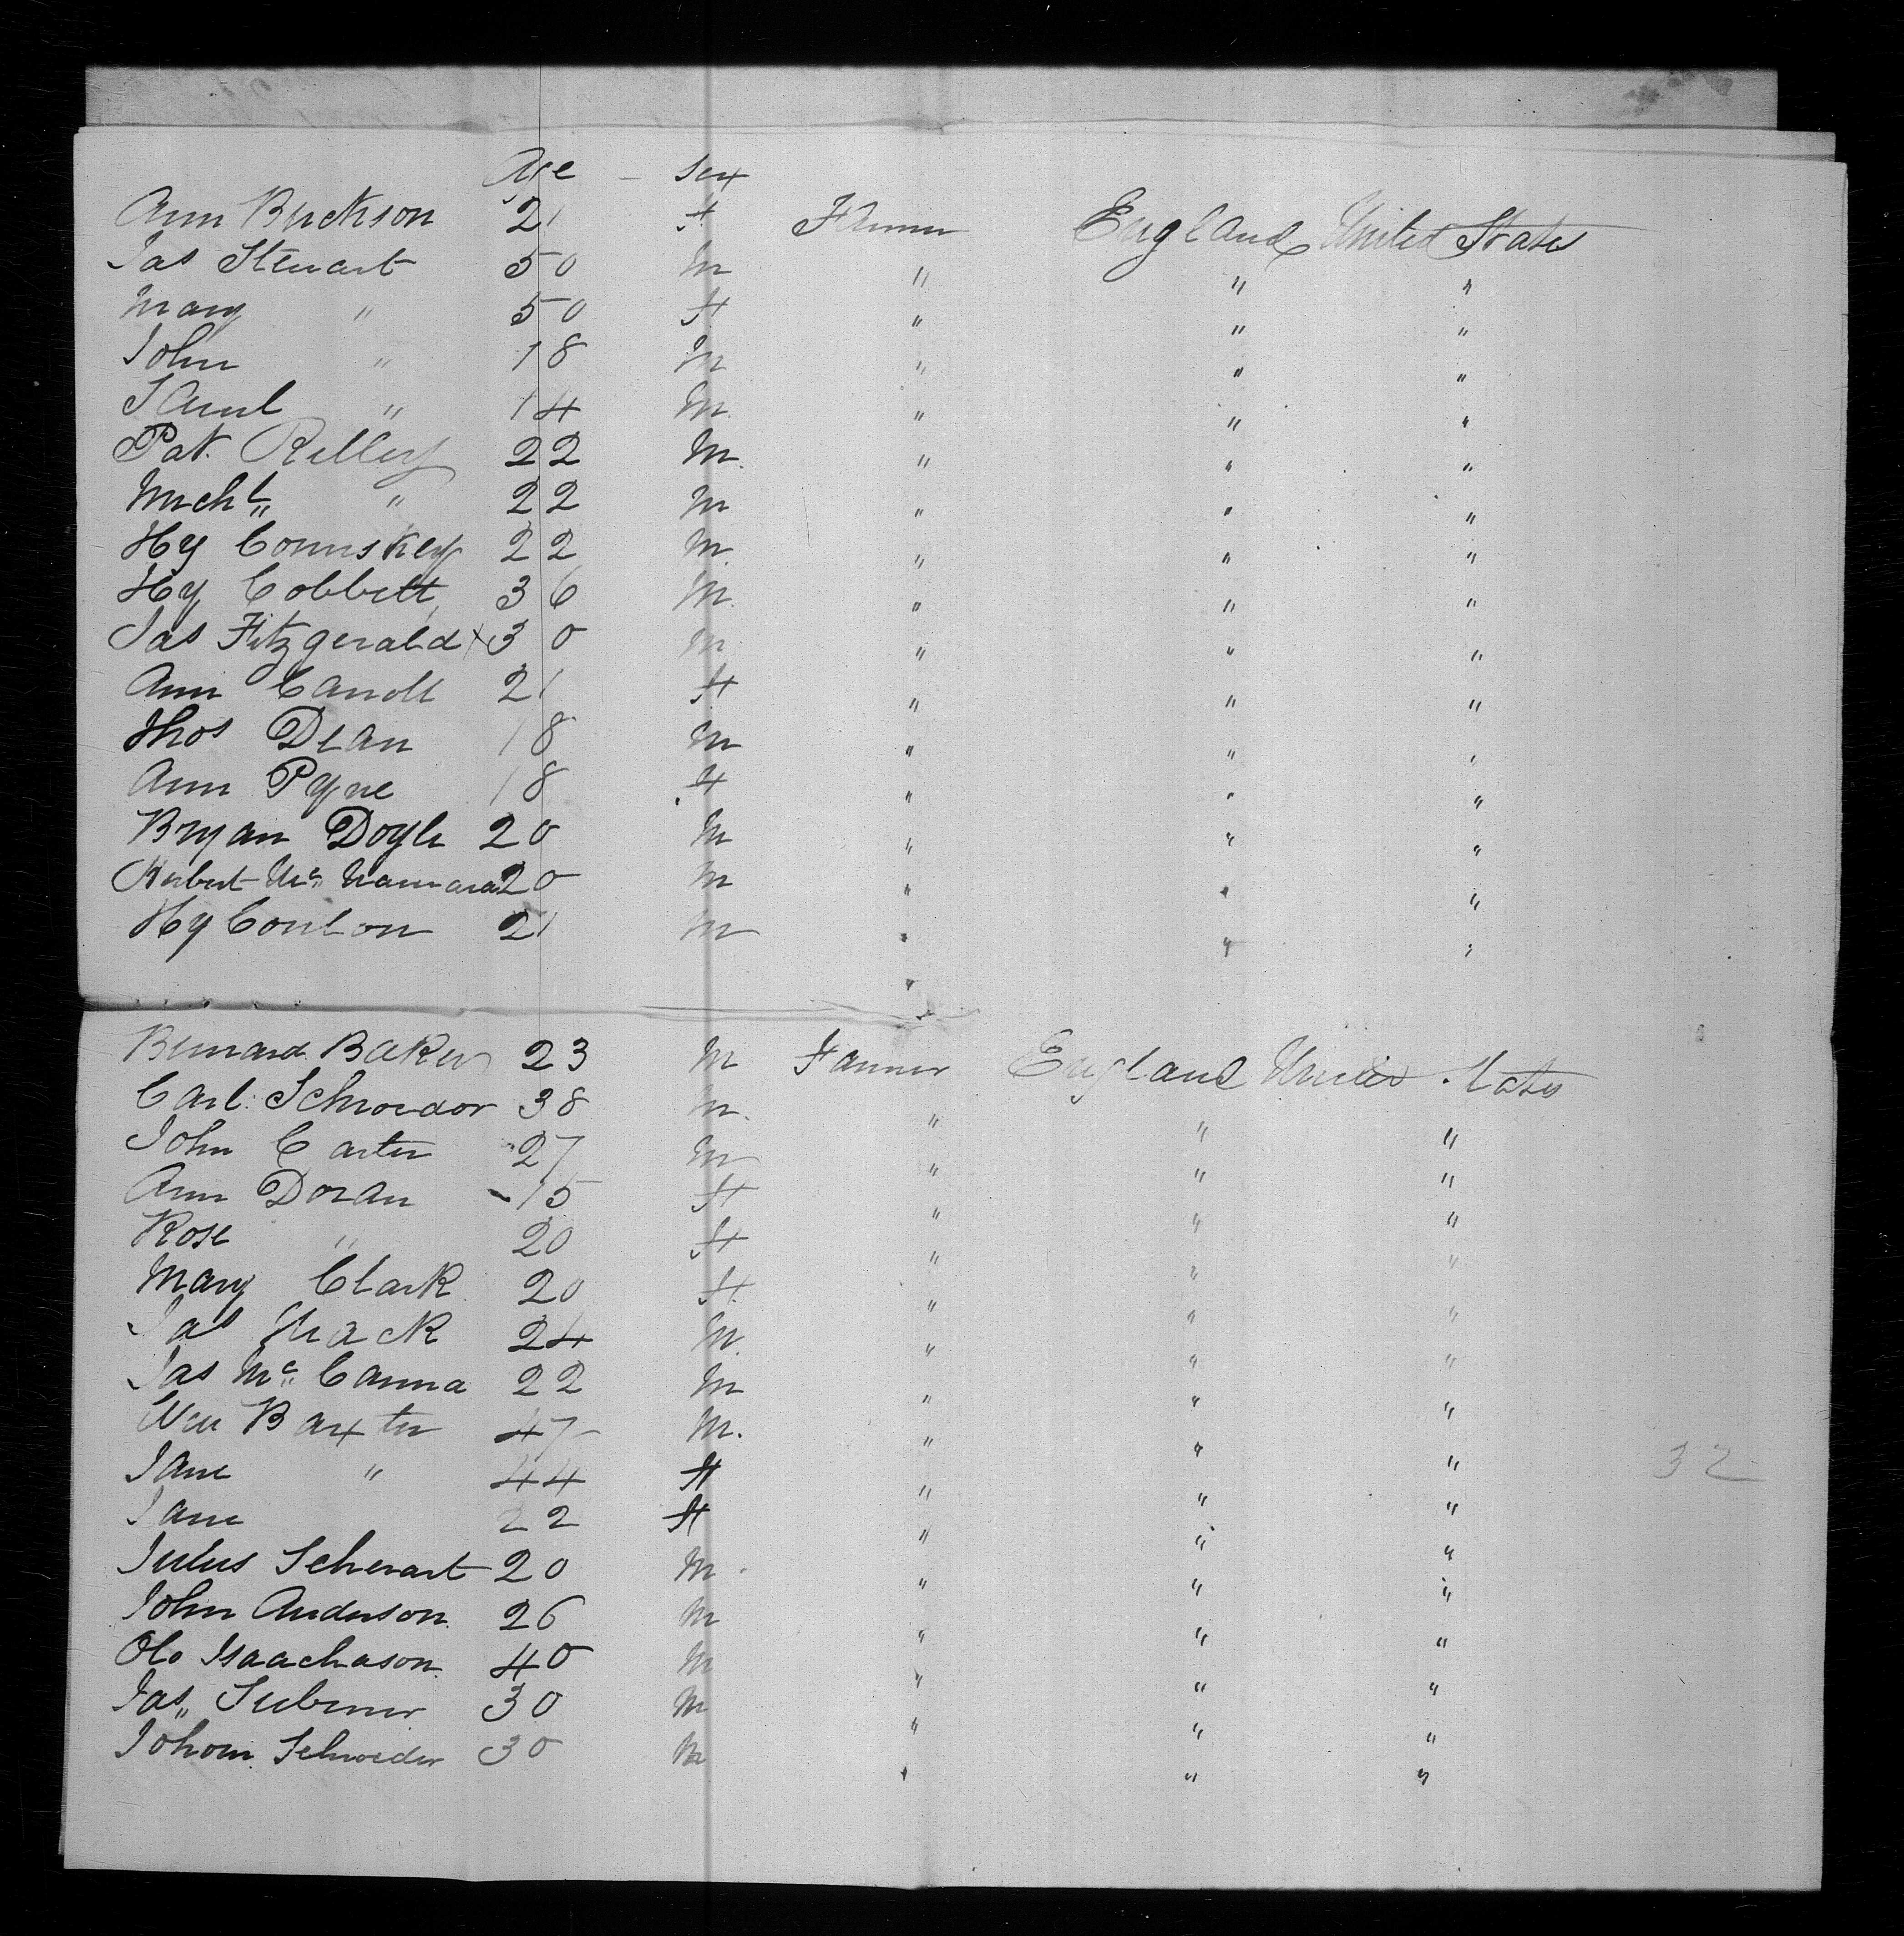 Age - Sex
Ann Buckson 21 f Farmer England United States
Jas Stewart 50 m " " "
Mary " 50 f " " "
John " 18 m " " "
Saml " 14 m " " "
Pat. Relley 22 m " " "
Michl " 22 m " " "
Hy Comiskey 22 m " " "
Hy Cobbett 36 m " " "
Jas Fitzgerald x 30 m " " "
Ann Carroll 21 f " " "
Thos Dean 18 m " " "
Ann Pyne 18 f " " "
Bryan Doyle 20 m " " "
Herbert Mc Namara 20 m " " "
Hy Conlon 21 m " " "
"
Bernard Baker 23 m Farmer England United States
Carl Schroedor 38 m " " "
John Carter 27 m " " "
Ann Doran 15 f " " "
Rose " 20 f " " "
Mary Clark 20 f " " "
Jas 24 m " " "
Jas Mc Canna 22 m " " "
Wm Baxter 47 m " " "
Jane " 44 f " " " 32
Jane 22 f " " "
Julius Scherart 20 m " " "
John Anderson 26 m " " "
Olo Isaachason 40 m " " "
Jas 30 m " " "
Johom Schroeder 30 m " " "